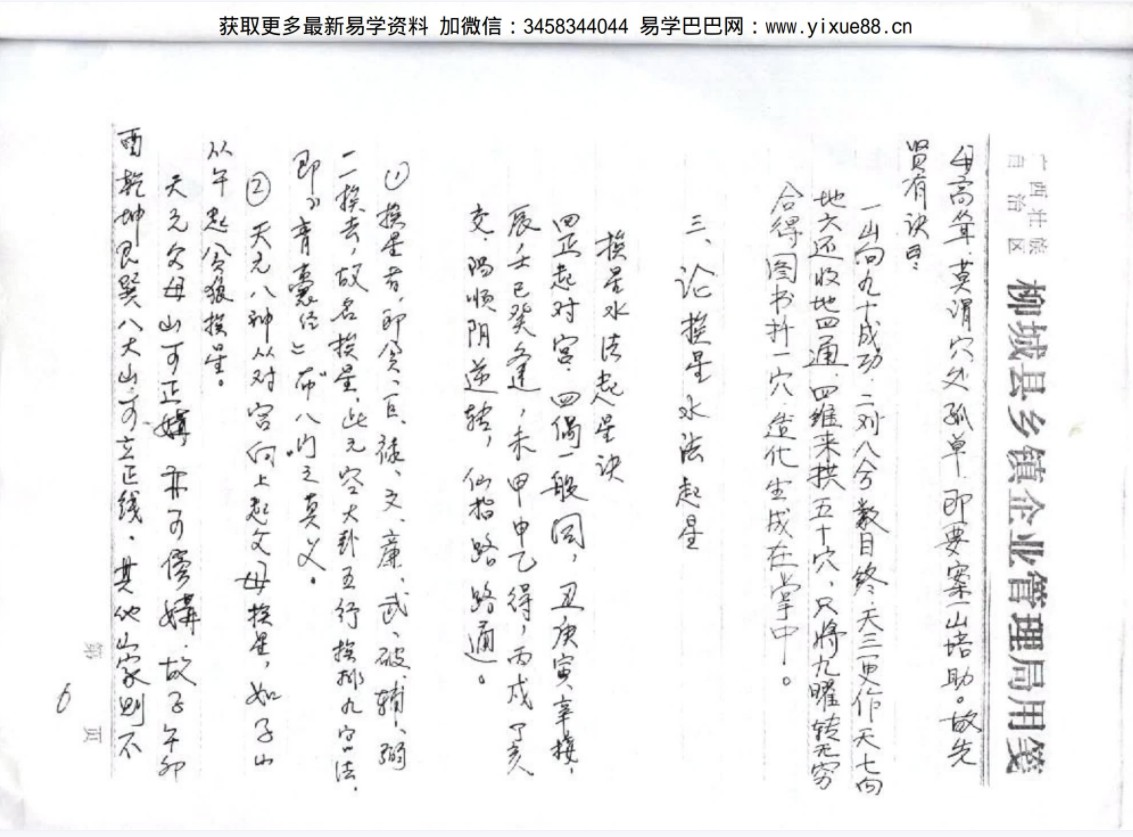 获取更多最新易学资料 加微信：3458344044 易学巴巴网：www.yixue88.cn
广西壮族
自治区
柳城县乡镇企业管理局用笺
毋高耸，莫谓穴处孤单，即要案一山培助。故先
贤有诀曰：
一山向九十成功，二对八兮数目终，天三更作天七向
地六还收地四通，四维来拱五十穴，只将九曜转无穷
合得图书扦一穴，造化生成在掌中。
三、论挨星水法起星
挨星水法起星诀
四正起对宫，四偶一般同，丑庚寅辛接，
辰壬巳癸逢，未甲申乙得，丙戌丁亥
交，阳顺阴逆转，仙指路路通。
①挨星者，即贪、巨、禄、文、廉、武、破、辅、弼
一一挨去，故名挨星，此元空大卦五行挨排九宫法，
即《青囊经》“布八门”之真义。
②天元八神从对宫向上起父母挨星，如子山
从午起贪狼挨星。
天元父母山可正媾，亦可傍媾，故子午卯
酉乾坤艮巽八大山，可立正线，其他山家则不
第 6 页